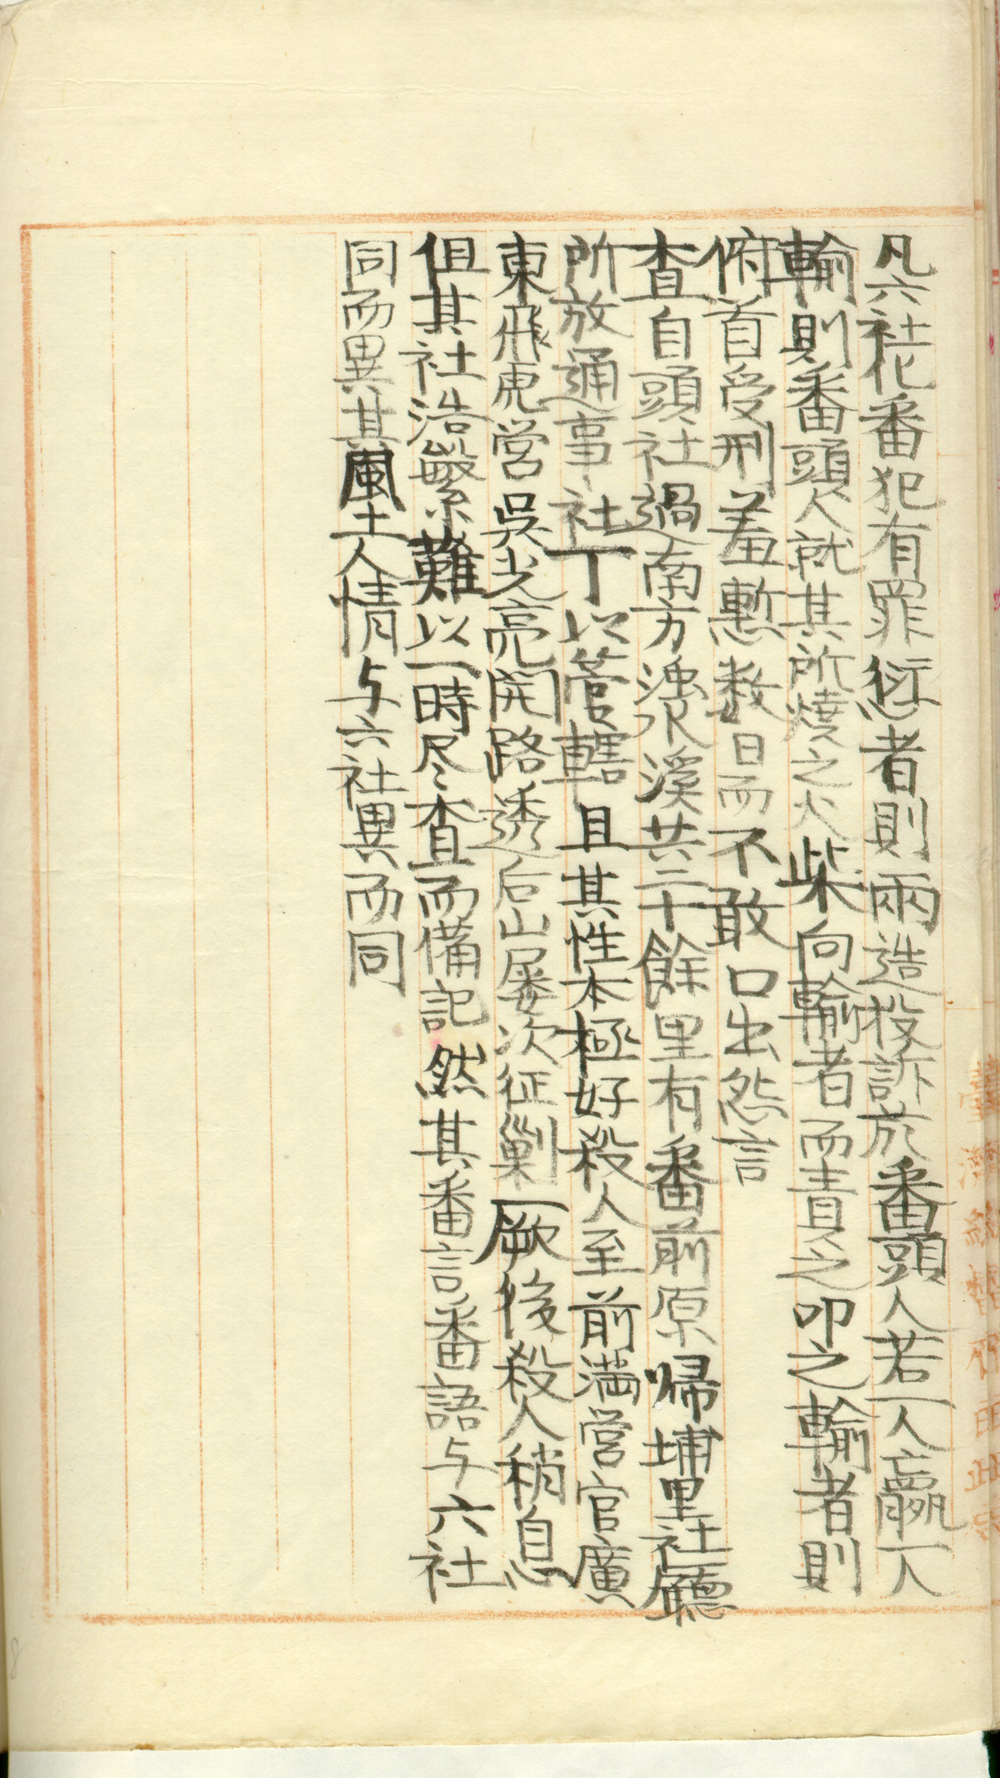 凡六社化番犯有罪愆者則兩造投訴於番頭人若一人贏一人
輸則番頭人就其所燒之火柴向輸者而責之叩之輸者則
俯首受刑羞慙数日而不敢口出怨言
查自頭社過南方濁水溪共三十餘里有番前原帰埔里社廳
所放通事社丁以管轄且其性本極好殺人至前満営官廣
東飛虎営吳光亮開路透后山屡次征剿厥後殺人稍息
但其社浩繁難以一時尽查而備記然其番言番語与六社
同而異其風土人情与六社異而同